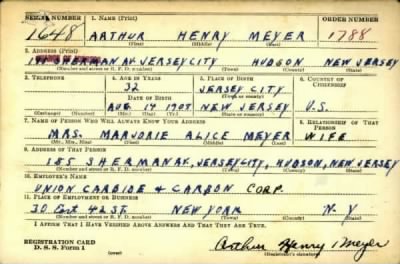 SERIAL NUMBER 1. NAME (Print) ORDER NUMBER
1648 ARTHUR HENRY MEYER 1788
(First) (Middle) (Last)
2. ADDRESS (Print)
SHERMAN AV. JERSEY CITY HUDSON NEW JERSEY
(Number and street or R. F. D. number) (Town) (County) (State)
3. TELEPHONE 4. AGE IN YEARS 5. PLACE OF BIRTH 6. COUNTRY OF CITIZENSHIP
32 JERSEY CITY
DATE OF BIRTH (Town or county)
AUG 14 NEW JERSEY U.S.
(Exchange) (Number) (Mo.) (Day) (Yr.) (State or country)
7. NAME OF PERSON WHO WILL ALWAYS KNOW YOUR ADDRESS 8. RELATIONSHIP OF THAT PERSON
MRS. MARJORIE ALICE MEYER WIFE
(Mr., Mrs., Miss) (First) (Middle) (Last)
9. ADDRESS OF THAT PERSON
185 SHERMAN AV., JERSEY CITY, HUDSON, NEW JERSEY
(Number and street or R. F. D. number) (Town) (County) (State)
10. EMPLOYER'S NAME
UNION CARBIDE & CARBON CORP.
11. PLACE OF EMPLOYMENT OR BUSINESS
30 East 42 ST. NEW YORK N-Y
(Number and street or R. F. D. number) (Town) (County) (State)
I AFFIRM THAT I HAVE VERIFIED ABOVE ANSWERS AND THAT THEY ARE TRUE.
REGISTRATION CARD
D. S. S. Form 1 Arthur Henry Meyer
(Registrant's signature)